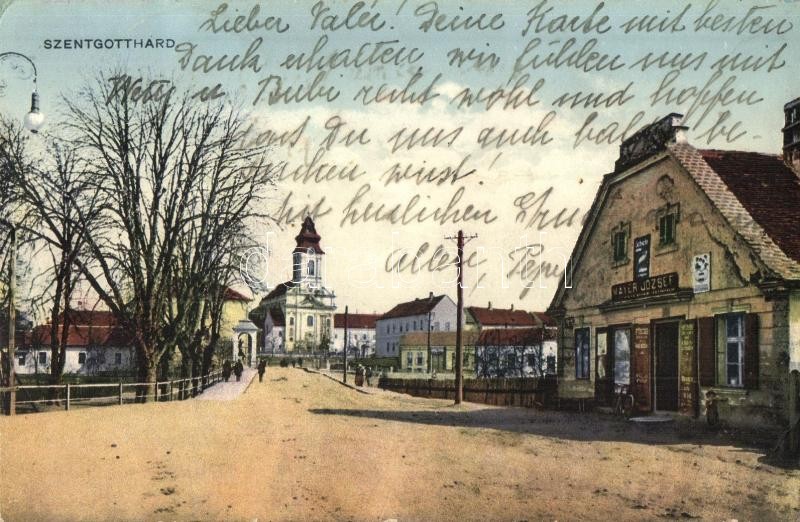 SZENTGOTTHÁRD
Lieber Valér! Deine Karte mit besten
Dank erhalten wir fühlen uns mit
Netty u Bubi recht wohl und hoffen
dass Du uns auch bald be-
suchen wirst!
Mit herzlichen Grüssen
allen
MAYER JÓZSEF
darabanth